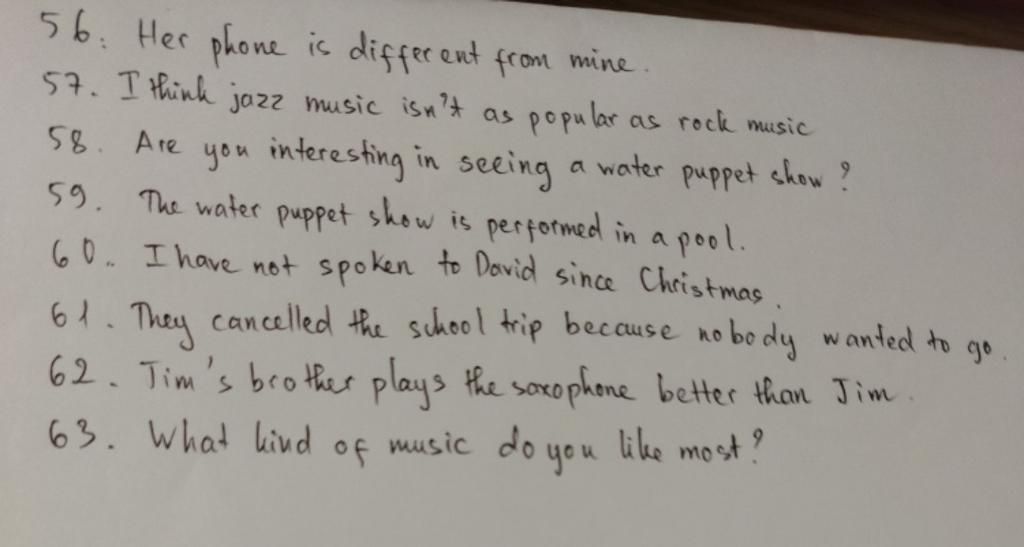 56. Her phone is different from mine.
57. I think jazz music isn't as popular as rock music
58. Are you interesting in seeing a water puppet show?
59. The water puppet show is performed in a pool.
60.. I have not spoken to David since Christmas.
61. They cancelled the school trip because nobody wanted to go.
62. Tim's brother plays the saxophone better than Jim.
63. What kind of music do you like most?